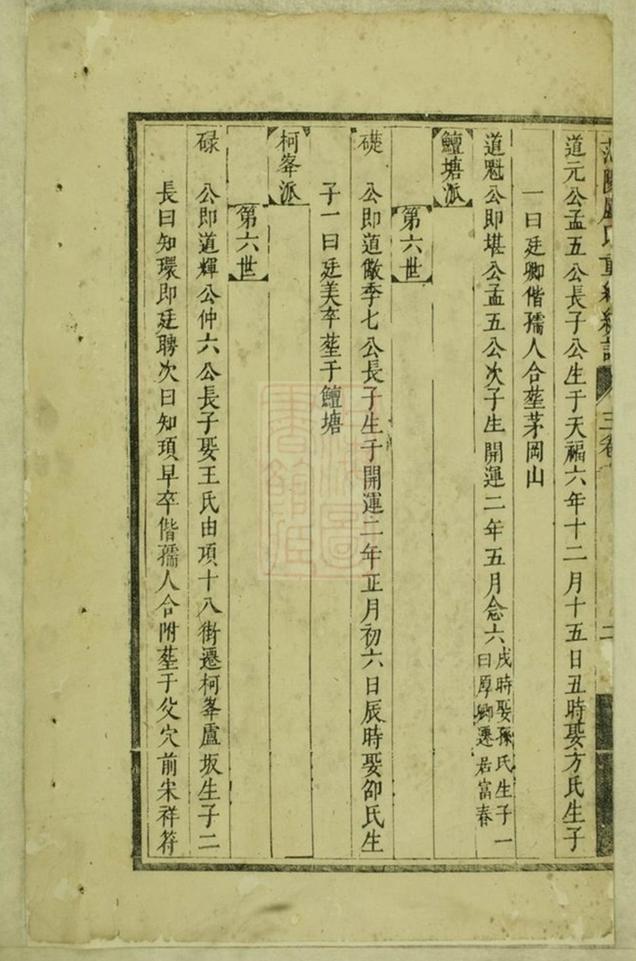 范陽盧氏重 三卷 二
道元公孟五公長子公生于天福六年十二月十五日丑時娶方氏生子
一曰廷卿偕孺人合塟茅岡山
道魁公即堪公孟五公次子生開運二年五月念六戌時娶孫氏生子一
曰厚卿遷居富春
鱣塘派
第六世
礎 公即道儆季七公長子生于開運二年正月初六日辰時娶邵氏生
子一曰廷美卒塟于鱣塘
柯峯派
第六世
碌 公即道輝公仲六公長子娶王氏由項十八街遷柯峯盧坂生子二
長曰知環即廷聘次曰知頊早卒偕孺人合附塟于父穴前宋祥符